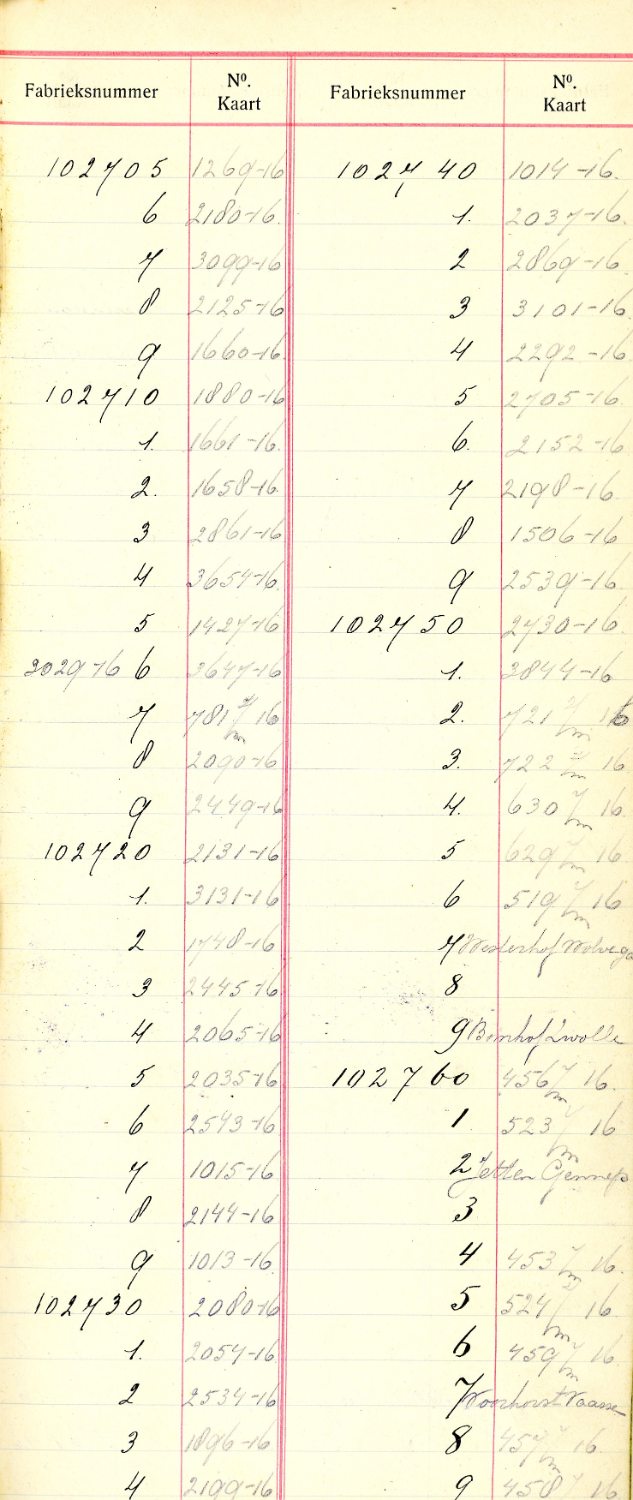 Fabrieksnummer Nº. Kaart
102705 1269-16
6 2180-16.
7 3099-16
8 2125-16
9 1660-16.
102710 1880-16
1. 1661-16.
2. 1658-16
3 2861-16
4 3654-16
5 1427-16
3029-16 6 3647-16
7 781 7/m 16
8 2090-16
9 2449-16
102720 2131-16
1. 3131-16
2 1748-16
3 2445-16
4 2065-16
5 2035-16
6 2543-16
7 1015-16
8 2144-16
9 1013-16.
102730 2080-16
1. 2054-16
2 2534-16
3 1896-16
4 2199-16
Fabrieksnummer Nº. Kaart
102740 1014-16.
1. 2037-16.
2 2869-16
3 3101-16
4 2292-16
5 2705-16.
6. 2152-16
7 2198-16.
8 1506-16
9 2539-16.
102750 2730-16.
1. 3844-16
2. 721 7/m 16
3. 722 7/m 16
4. 630 7/m 16
5 629 7/m 16
6 519 7/m 16
7 Westerhof Wolvega
8
9 Bomhof Zwolle
102760 456 7/m 16.
1 523 7/m 16
2 Jetten Gennep
3
4 453 7/m 16.
5 524 7/m 16
6 459 7/m 16
7 Voorhorst Vaassen
8 457 7/m 16.
9 458 7 16